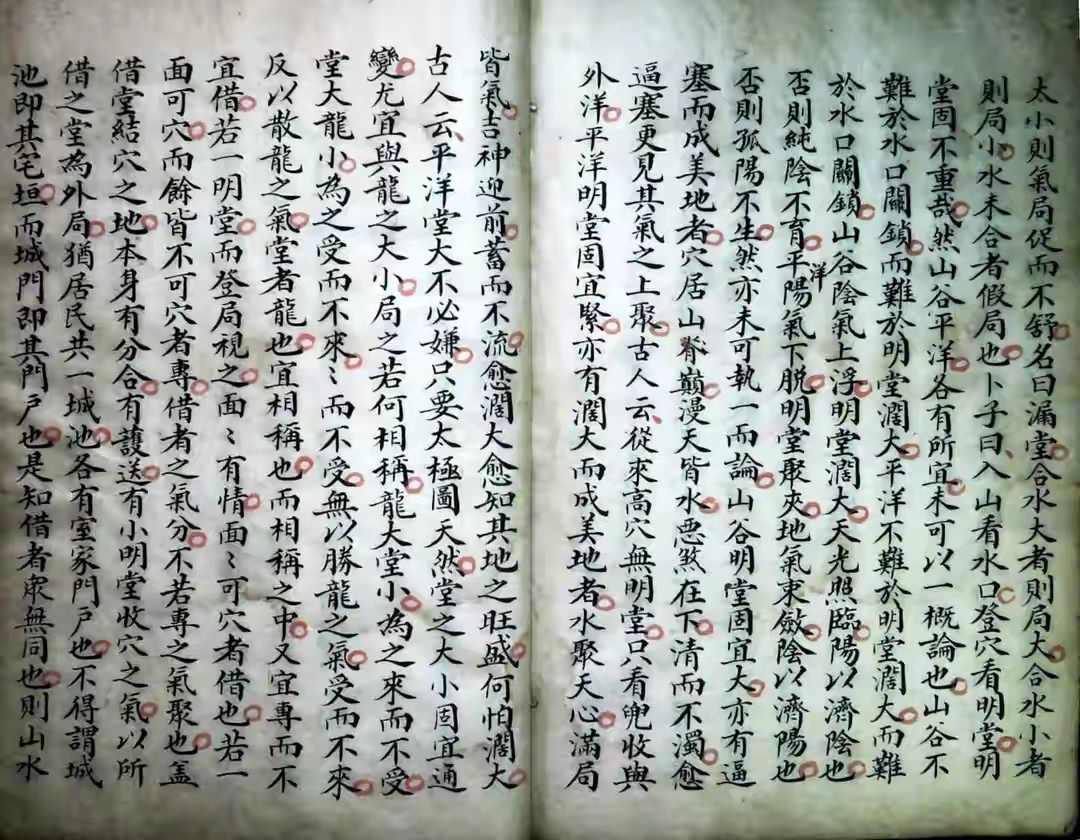 太小則氣局促而不舒名曰漏堂合水大者則局大合水小者
則局小水未合者假局也卜子曰入山看水口登穴看明堂明
堂固不重哉然山谷平洋各有所宜未可以一概論也山谷不
難於水口關鎖而難於明堂濶大平洋不難於明堂濶大而難
於水口關鎖山谷陰氣上浮明堂濶大天光照臨陽以濟陰也
否則純陰不育平洋陽氣下脱明堂聚夾地氣東斂陰以濟陽也
否則孤陽不生然亦未可執一而論山谷明堂固宜大亦有逼
塞而成美地者穴居山脊巔漫天皆水惡煞在下清而不濁愈
逼塞更見其氣之上聚古人云從來高穴無明堂只看兜收與
外洋平洋明堂固宜緊亦有濶大而成美地者水聚天心滿局
皆氣吉神迎前蓄而不流愈濶大愈知其地之旺盛何怕濶大
古人云平洋堂大不必嫌只要太極圖天然堂之大小固宜通
變尤宜與龍之大小局之若何相稱龍大堂小為之來而不受
堂大龍小為之受而不來〻而不受無以勝龍之氣受而不來
反以散龍之氣堂者龍也宜相稱也而相稱之中又宜專而不
宜借若一明堂而登局視之面〻有情面〻可穴者借也若一
面可穴而餘皆不可穴者專借者之氣分不若專之氣聚也盖
借堂結穴之地本身有分合有護送有小明堂收穴之氣以所
借之堂為外局猶居民共一城池各有室家門户也不得謂城
池即其宅垣而城門即其門户也是知借者衆無同也則山水